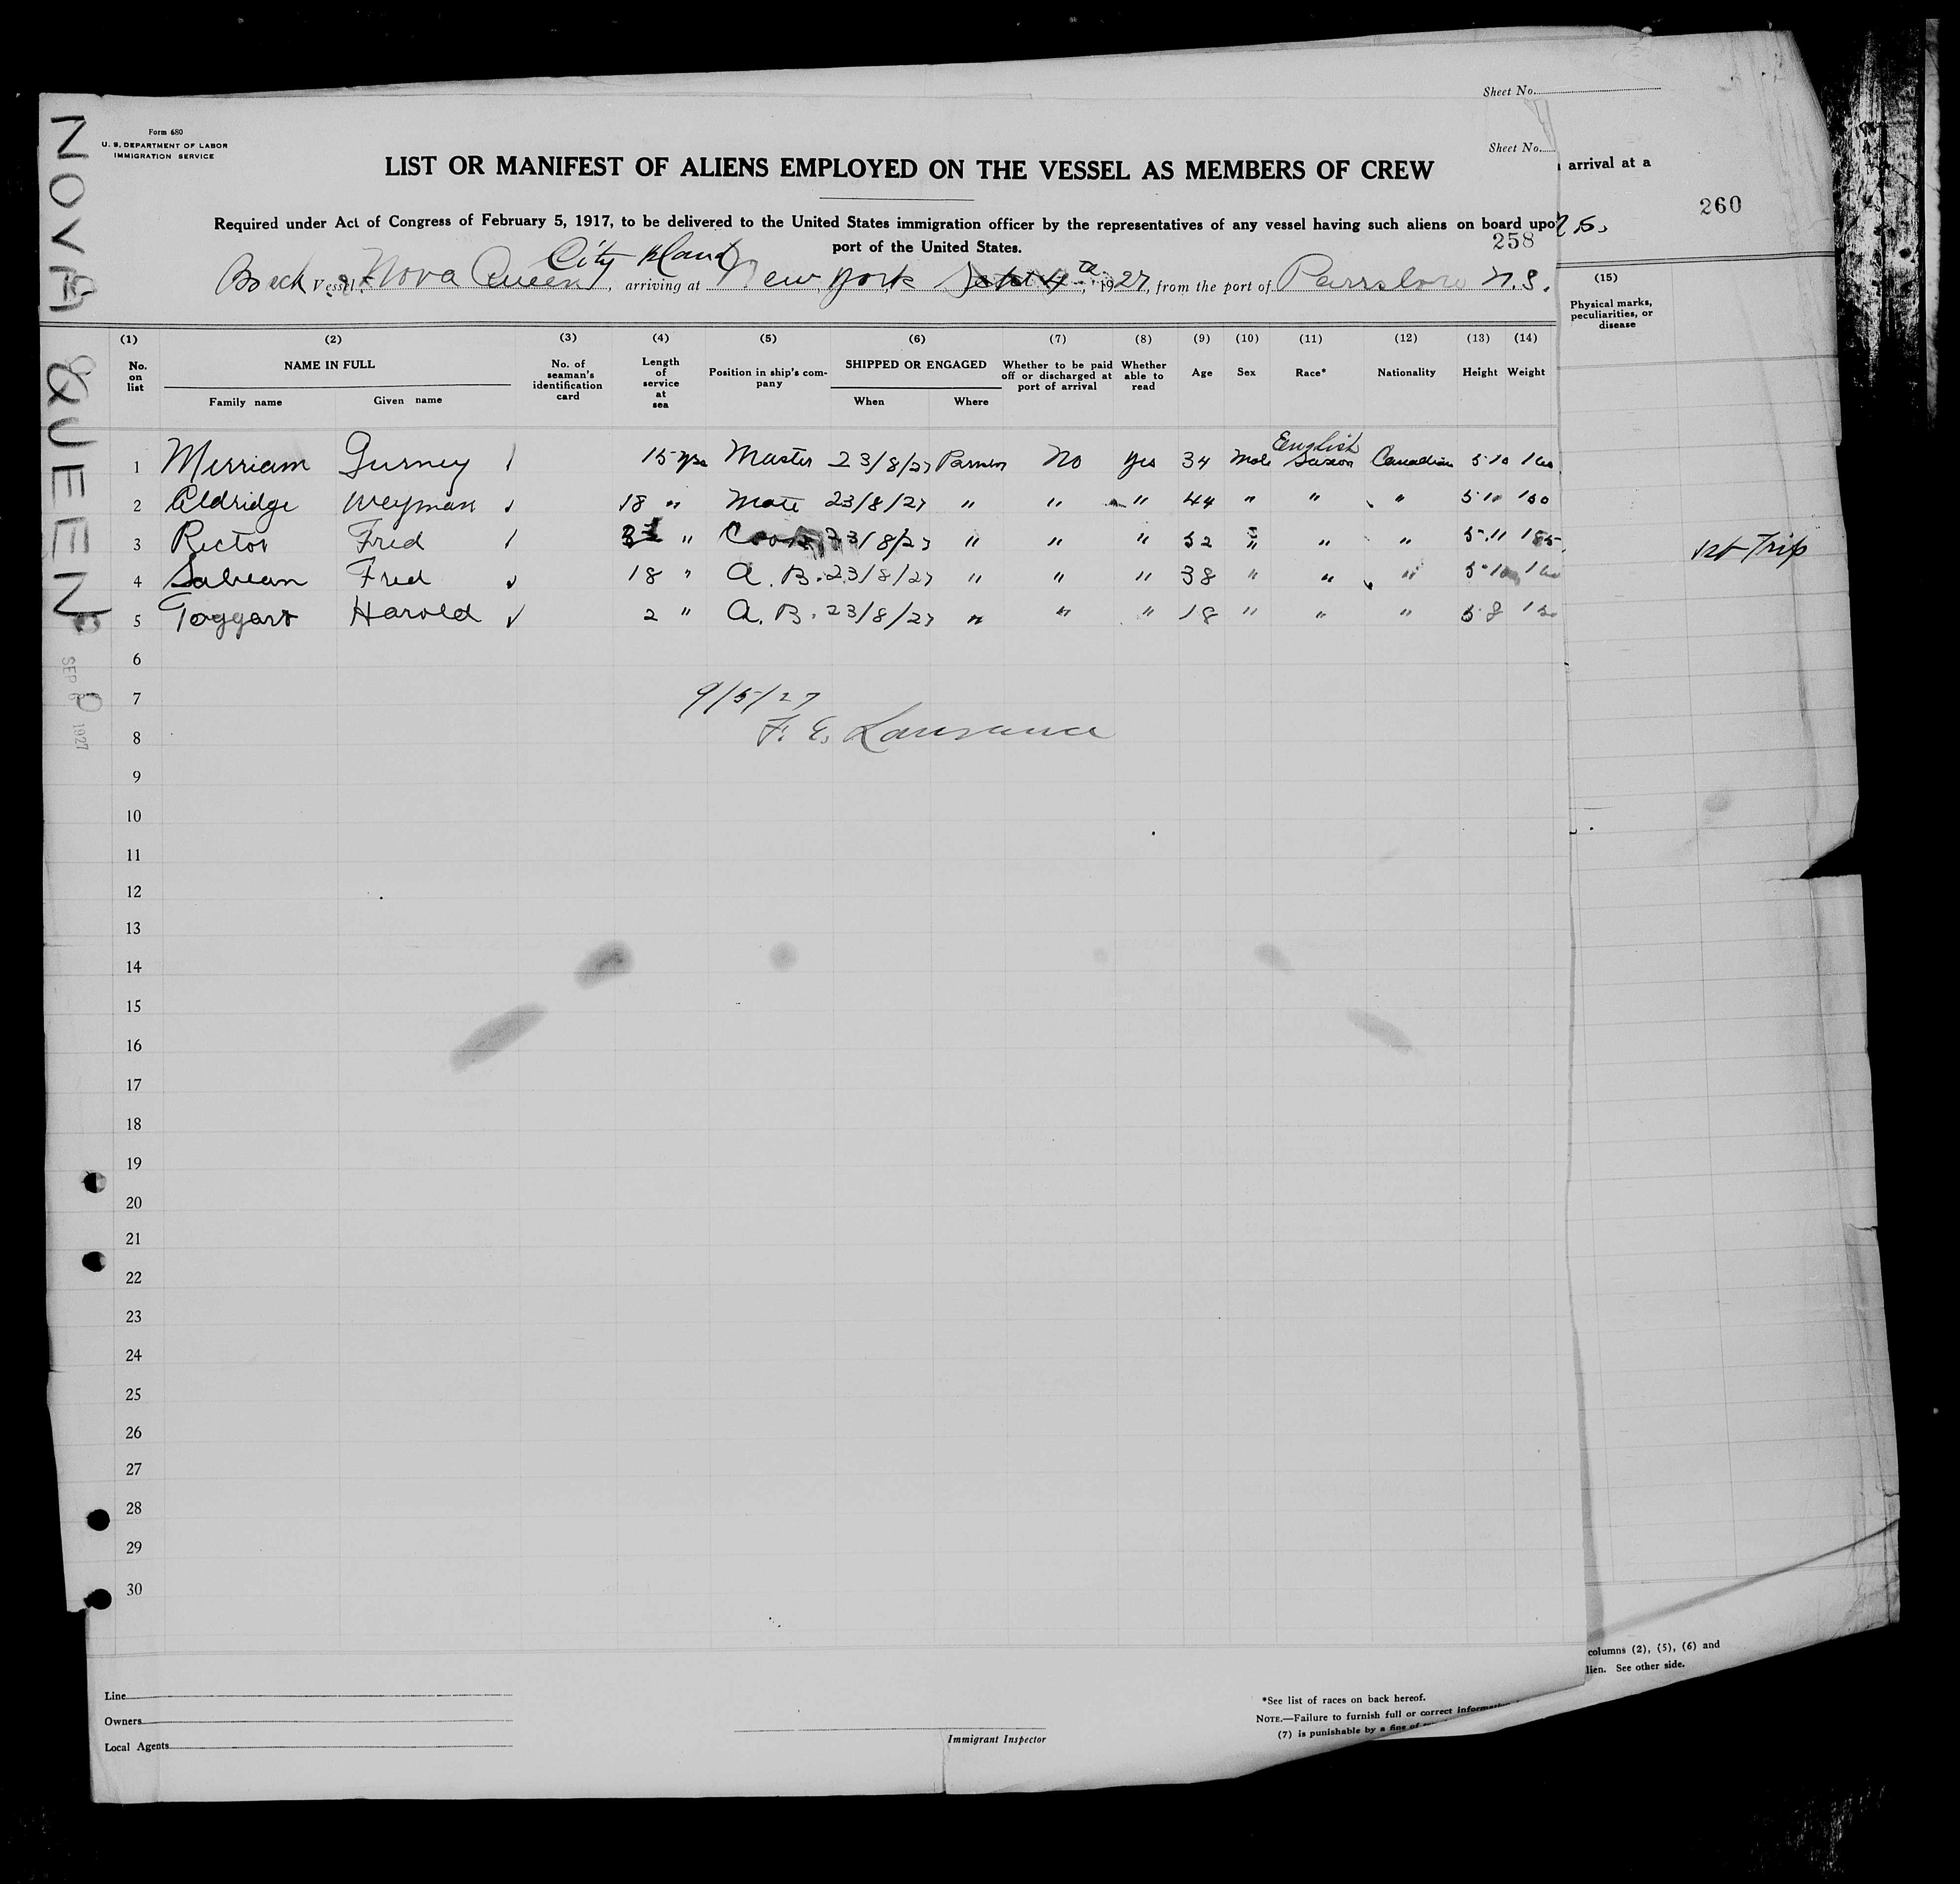 Sheet No.
Form 680
U. S. DEPARTMENT OF LABOR
IMMIGRATION SERVICE
Sheet No.
LIST OR MANIFEST OF ALIENS EMPLOYED ON THE VESSEL AS MEMBERS OF CREW
arrival at a
260
Required under Act of Congress of February 5, 1917, to be delivered to the United States immigration officer by the representatives of any vessel having such aliens on board upo
port of the United States.
258
City Island
Vessel Nova Queen, arriving at New York Sept 4th, 1927, from the port of Parrsboro N.S.
(1) (2) (3) (4) (5) (6) (7) (8) (9) (10) (11) (12) (13) (14) (15)
No. on list NAME IN FULL Family name Given name No. of seaman's identification card Length of service at sea Position in ship's company SHIPPED OR ENGAGED When Where Whether to be paid off or discharged at port of arrival Whether able to read Age Sex Race* Nationality Height Weight Physical marks, peculiarities, or disease
1 Merriam Gurney 15 yrs Master 23/8/27 No Yes 34 Male English Canadian 5 10
2 Aldridge Weyman 18 " Mate 23/8/27 " " " 44 " " "
3 Rector Fred " Cook 23/8/27 " " " 52 " " " 5.11 185
1st Trip
4 Sabean Fred 18 " A. B. 23/8/27 " " " 38 " " " 5.10
5 Taggart Harold 2 " A. B. 23/8/27 " " " 18 " " " 5 8
6
7
9/5/27
8
F. E. Lawrance
9
10
11
12
13
14
15
16
17
18
19
20
21
22
23
24
25
26
27
28
29
30
columns (2), (5), (6) and
lien. See other side.
Line
Owners
Local Agents
Immigrant Inspector
*See list of races on back hereof.
NOTE.—Failure to furnish full or correct information
(7) is punishable by a fine of
NOVA QUEEN
SEP 6 1927